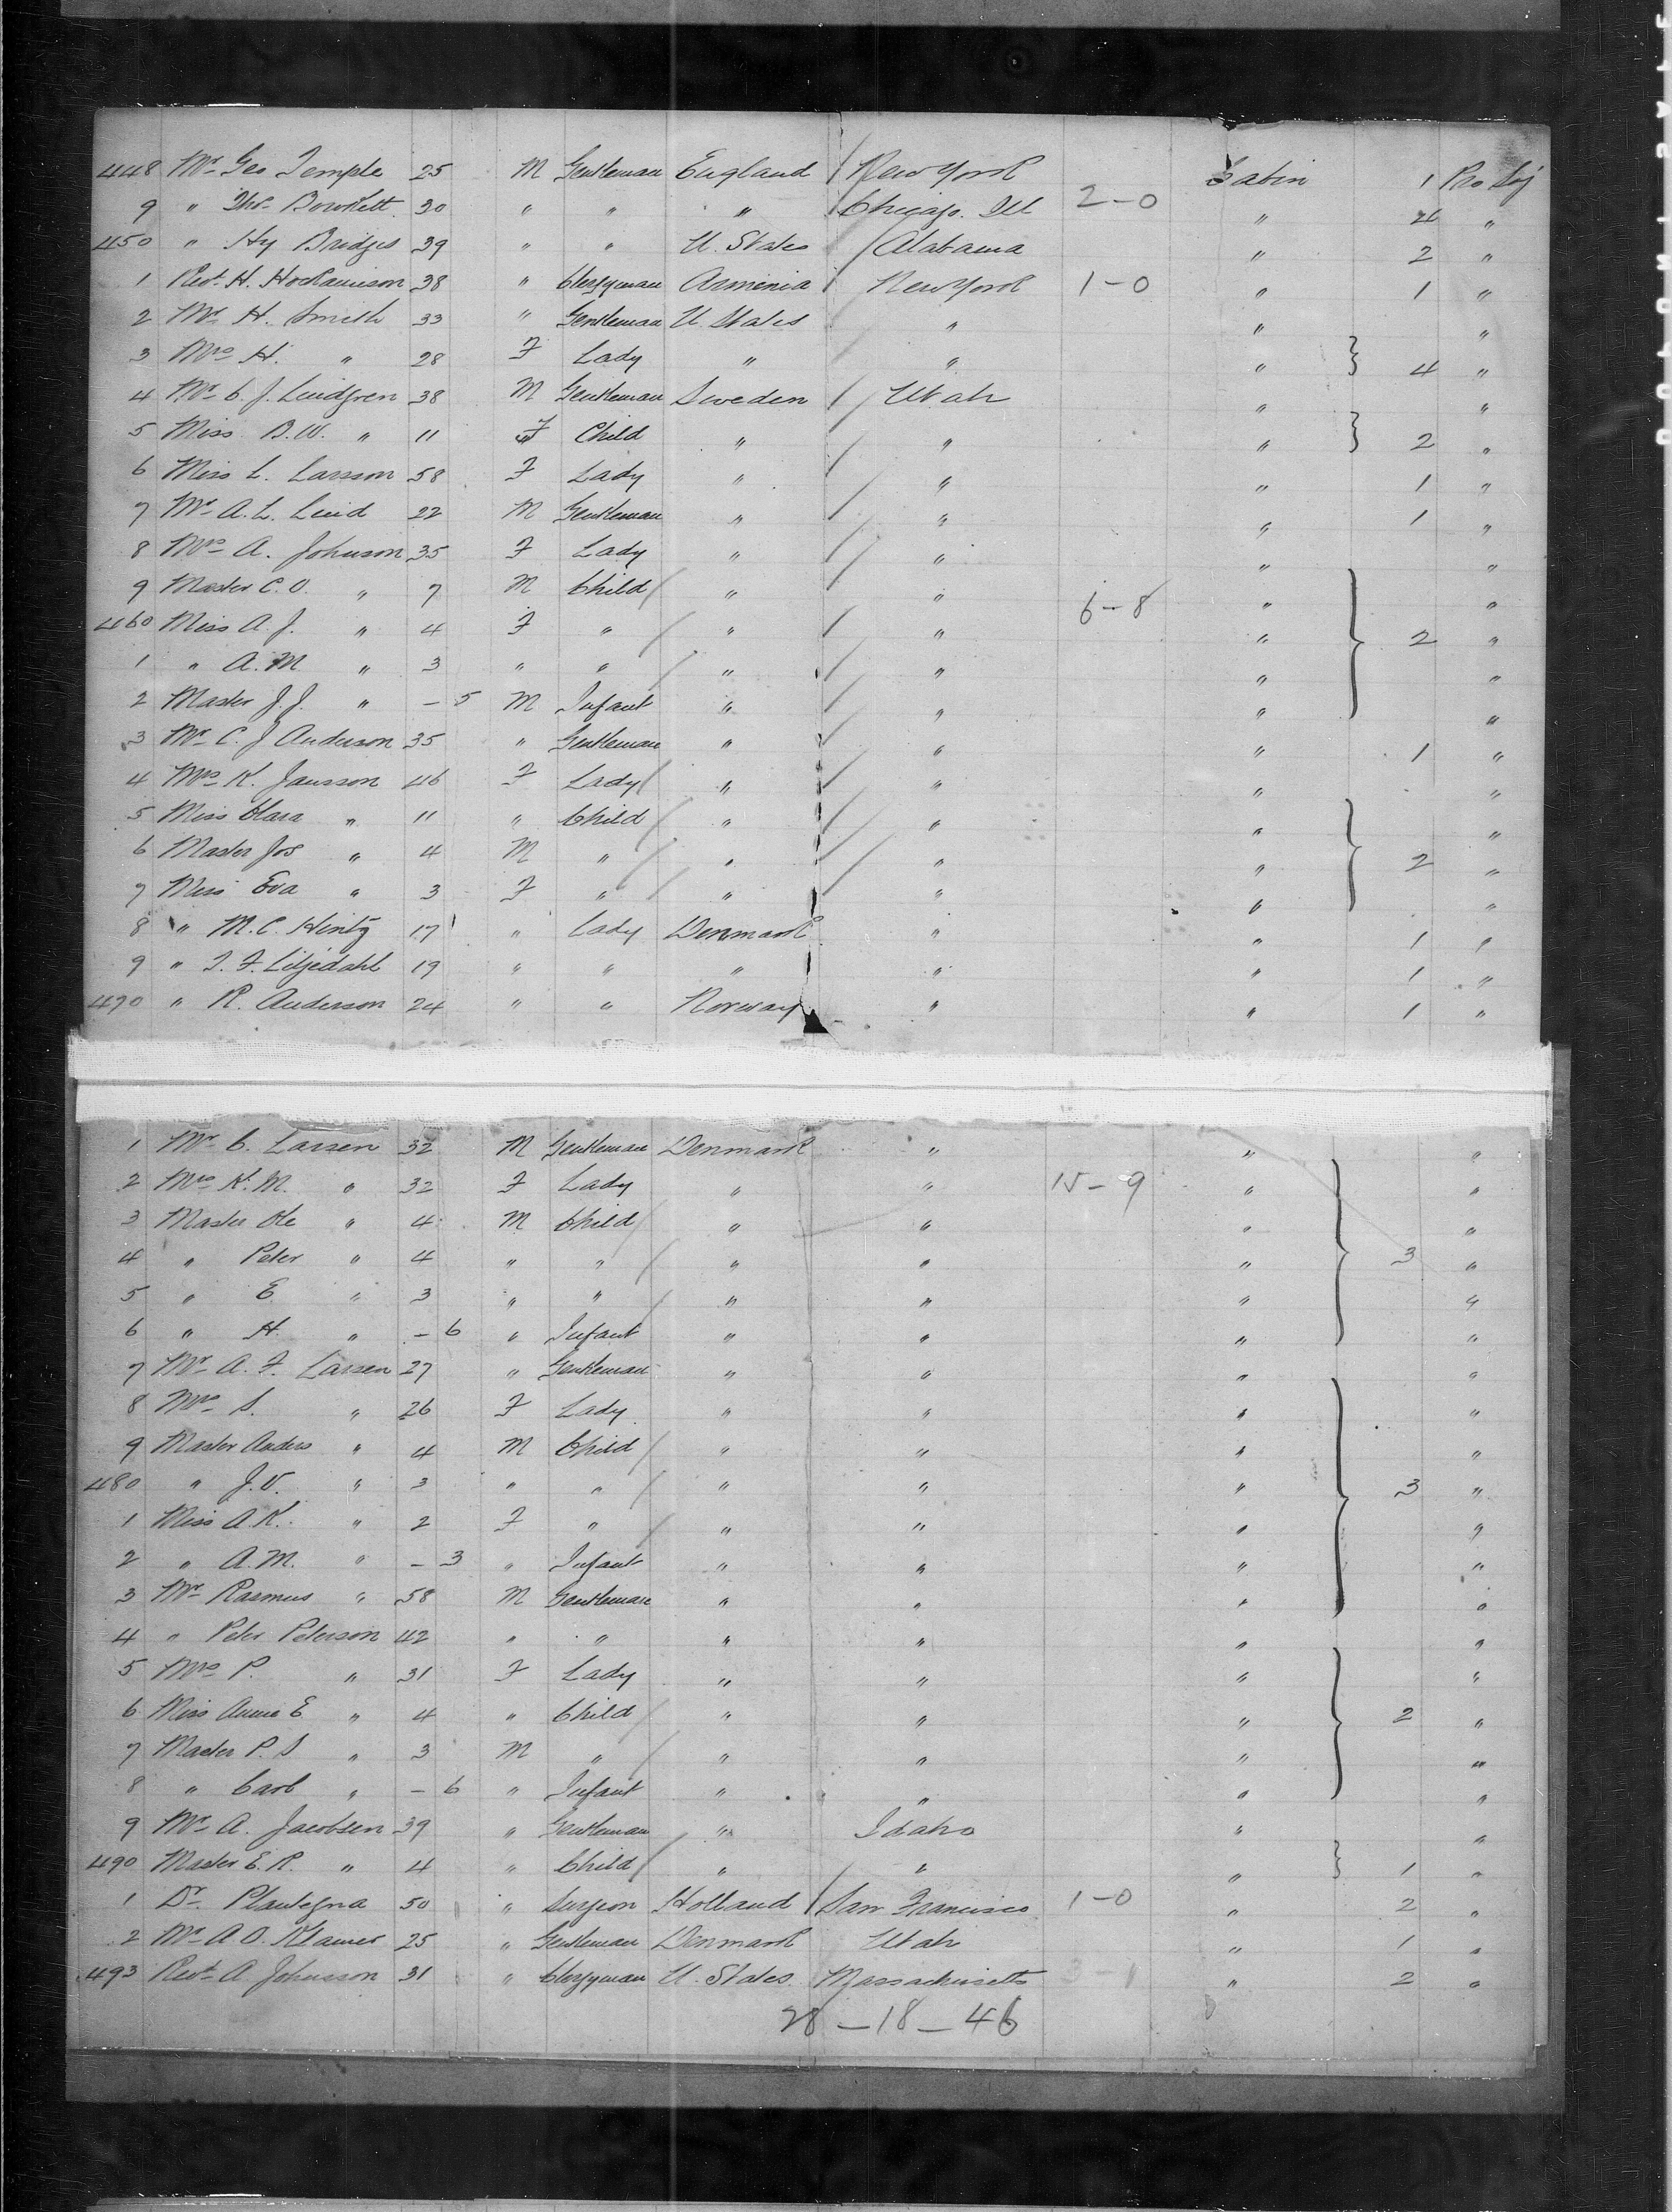 448 Mr Geo Temple 25 M Gentleman England / New York Cabin 1 Pro Soj
9 " Thos Bowkett 30 " " " / Chicago. Ill 2-0 " 4 "
450 " Hy Bridges 39 " " U. States / Alabama " 2 "
1 Revd H. 38 " Clergyman Armenia / New York 1-0 " 1 "
2 Mr H. Smith 33 " Gentleman U. States " " "
3 Mrs H. " 28 F Lady " " " } 4 "
4 Mr C. J. Lindgren 38 M Gentleman Sweden / Utah " "
5 Miss B.W. " 11 F Child " / " " } 2 "
6 Miss L. Larsson 58 F Lady " / " " 1 "
7 Mr A. L. Lind 22 M Gentleman " / " " 1 "
8 Mrs A. Johnson 35 F Lady " / " " "
9 Master C. O. " 7 M Child / " / " 6-8 " "
460 Miss A. J. " 4 F " / " / " " } 2 "
1 " A. M " 3 " " / " / " " "
2 Master J. J. " - 5 M Infant " / " " "
3 Mr C. J Anderson 35 " Gentleman " / " " 1 "
4 Mrs K. Jansson 46 F Lady / " / " " "
5 Miss Clara " 11 " Child / " / " " "
6 Master Jos " 4 M " / " / " " } 2 "
7 Miss Eva " 3 F " / " / " " "
8 " M. C. Hintz 17 " Lady Denmark " " 1 "
9 " J. F. Liljedahl 19 " " " " " 1 "
470 " R. Anderson 24 " " Norway " " 1 "
1 Mr C. Larsen 32 M Gentleman Denmark " " "
2 Mrs K. M. " 32 F Lady " " 15-9 " "
3 Master Ole " 4 M Child / " " " "
4 " Peter " 4 " " / " " " } 3 "
5 " E " 3 " " / " " " "
6 " H. " - 6 " Infant " " " "
7 Mr A. F. Larsen 27 " Gentleman " " " "
8 Mrs S. " 26 F Lady " " " "
9 Master Anders " 4 M Child / " " " "
480 " J. V. " 3 " " / " " " } 3 "
1 Miss A. K. " 2 F " / " " " "
2 " A. M. " - 3 " Infant " " " "
3 Mr Rasmus " 58 M Gentleman " " " "
4 " Peter Peterson 42 " " " " " "
5 Mrs P. " 31 F Lady " " " "
6 Miss Annie E " 4 " Child / " " " } 2 "
7 Master P. S " 3 M " / " " " "
8 " Carl " - 6 " Infant " " " "
9 Mr A. Jacobsen 39 " Gentleman " Idaho " "
490 Master E. R. " 4 " Child / " " " } 1 "
1 Dr. 50 " Surgeon Holland / San Francisco 1-0 " 2 "
2 Mr A O. 25 " Gentleman Denmark Utah " 1 "
493 Revd A. Johnsson 31 " Clergyman U. States Massachusetts " 2 "
28 - 18 - 46